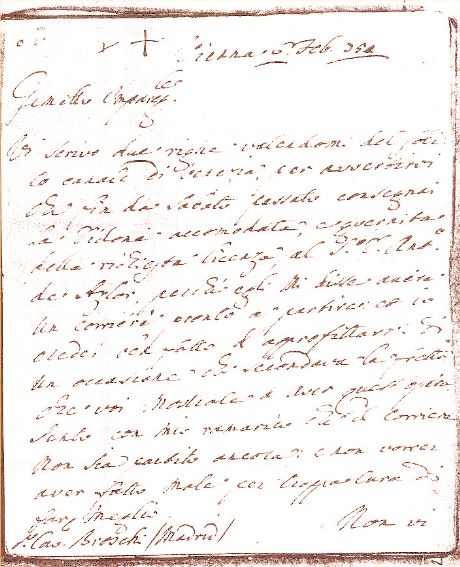 Vienna 6 Feb. 
Gemello
Vi scrivo due righe valendomi del soli
to canale di per avvertirvi
che fin da Sabato passato consegnai
la Didone accomodata, e
della licenza al Sr. Ant.
de perché egli mi disse avere
un corriere pronto a partire: ed io
credei ben fatto d'approfittarmi di
un occasione che secondava la fretta
che voi mostrate d'aver quest'opera
Sento con mio ramarico che il Corriere
non sia partito ancora: e non vorrei
aver fatto male per troppa cura di
far meglio
Non vi
Cav. Broschi (Madrid)